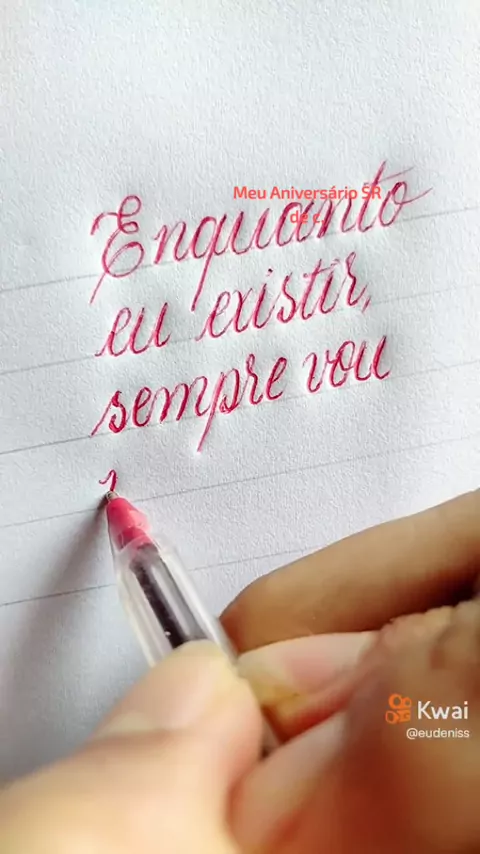 Meu Aniversário SR
de c.
Enquanto
eu existir,
sempre vou
Kwai
@eudeniss